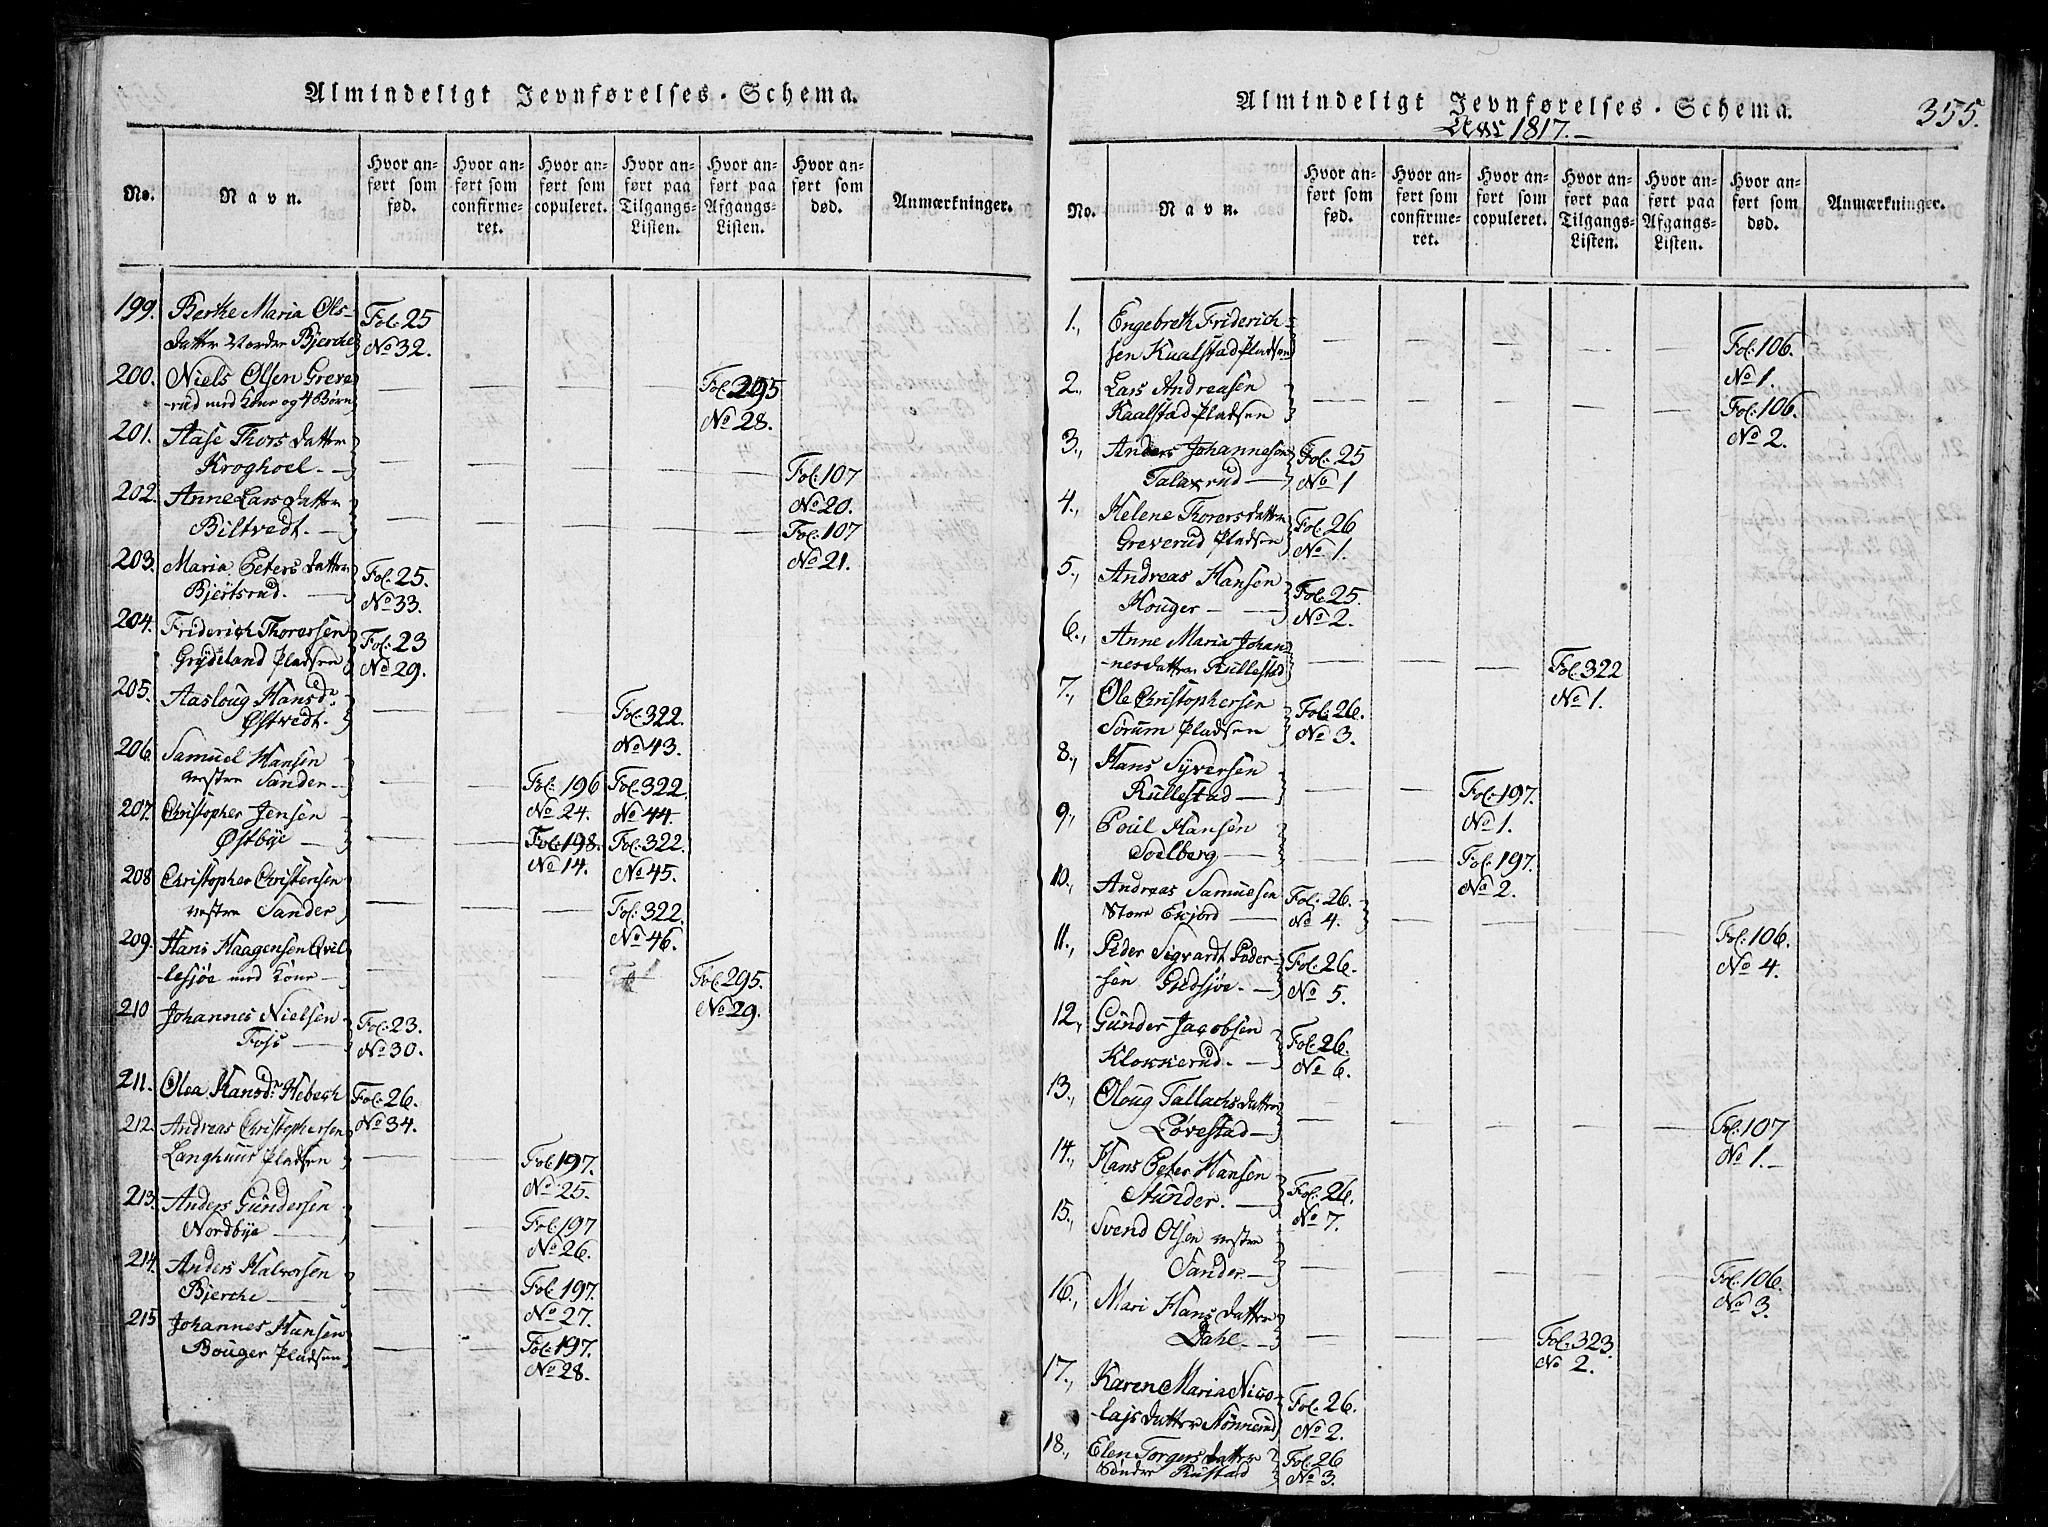 Almindeligt Jevnførelses-Schema.
No.
Navn.
Hvor anført som fød.
Hvor anført som confirmeret.
Hvor anført som copuleret.
Hvor anført paa Tilgangs-Listen.
Hvor anført paa Afgangs-Listen.
Hvor anført som død.
Anmærkninger.
199. Berthe Maria Ols-
datter Nordre Bjerche Fol: 25
No 32.
200. Niels Olsen Greve-
rud med Kone og 4 Børn Fol: 295
No 28.
201. Aase Thorsdatter
Kroghoel. Fol: 107
No 20.
202. Anne Larsdatter
Biltvedt. Fol: 107
No 21.
203. Maria Petersdatter
Bjertsrud. Fol: 25.
No 33.
204. Friderich Thorersen
Grydeland Pladsen Fol: 23
No 29.
205. Aasloug Hansdr
Østvedt. Fol: 322.
No 43.
206. Samuel Hansen
vestre Sander Fol: 196 Fol: 322.
No 24. No 44.
207. Christopher Jensen
Østbye Fol: 198. Fol: 322.
No 14. No 45.
208 Christopher Christensen
vestre Sander Fol: 322.
No 46.
209. Hans Haagensen Qvil-
lesjøe med Kone Fol: 295.
No 29.
210 Johannes Nielsen
Foss Fol: 23.
No 30.
211. Olea Hansdr Hebech Fol: 26.
No 34.
212. Andreas Christophersen
Langhuus Pladsen Fol: 197.
No 25.
213. Anders Gundersen
Nordbye Fol: 197
No 26.
214. Anders Halvorsen
Bjerche Fol: 197.
No 27.
215 Johannes Hansen
Bouger Pladsen Fol: 197.
No 28.
Almindeligt Jevnførelses-Schema.
Aar 1817.
355.
No.
Navn.
Hvor anført som fød.
Hvor anført som confirmeret.
Hvor anført som copuleret.
Hvor anført paa Tilgangs-Listen.
Hvor anført paa Afgangs-Listen.
Hvor anført som død.
Anmærkninger.
1., Engebreth Friderich-
sen Kaalstad Pladsen Fol: 106.
No 1.
2., Lars Andreasen
Kaalstad Pladsen Fol: 106.
No 2.
3., Anders Johannesen
Talaxrud Fol: 25
No 1
4., Helene Thorersdatter
Greverud Pladsen Fol: 26
No 1.
5., Andreas Hansen
Houger Fol: 25.
No 2.
6., Anne Maria Johan-
nesdatter Rullestad Fol: 322
No 1.
7., Ole Christophersen
Sørum Pladsen Fol: 26.
No 3.
8., Hans Syversen
Rullestad Fol: 197.
No 1.
9., Poul Hansen
Soelberg Fol: 197.
No 2.
10., Andreas Samuelsen
Store Ekjord Fol: 26.
No 4. Fol: 106.
No 4.
11., Peder Sigvardt Peder-
sen Gjedsjøe. Fol: 26.
No 5.
12., Gunder Jacobsen
Klokkerud. Fol: 26.
No 6.
13., Oloug Tallachsdatter
Løvestad Fol: 107
No 1.
14., Hans Peter Hansen
Stunder. Fol: 26.
No 7.
15., Svend Olsen vestre
Sander Fol: 106.
No 3.
16., Mari Hansdatter
Dahl Fol: 323.
No 2.
17., Karen Maria Nico-
lajsdatter Mønnerud Fol: 26.
No 2.
18., Elen Torgersdatter
Søndre Rustad Fol: 26
No 3.